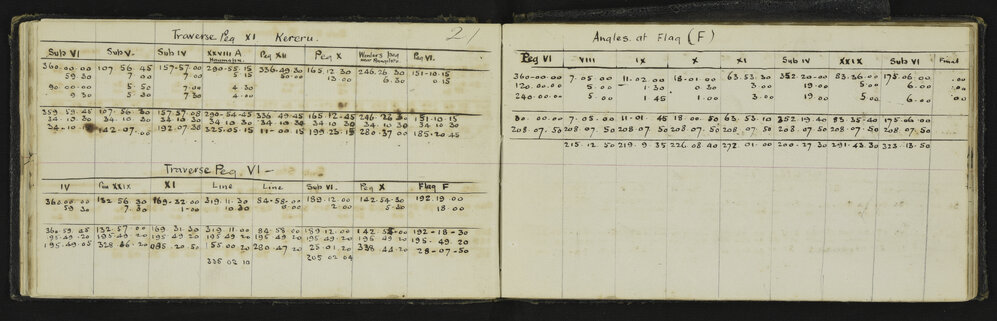 Traverse Peg XI Kereru. 21
Sub VI Sub V. Sub IV XXVIII A Peg XII Peg X Peg VI.
360.00.00 107.56.45 157-57.00 290-55.15 336.49.30 165.12.30 246.26.30 151-10.15
59.30 7.00 7.00 5.15 30.00 13.00 6.30 0.15
90.00.00 5.50 7.00 4.30
5.30 7.30 4.00
359.59.45 107.56.30 157.57.08 290-54-45 336.49-45 165.12-45 246.26.30 151.10.15
34.10.30 34.10.30 34.10.30 34.10.30 34.10.30 34.10.30 34.10.30
34.10 142.07.00 192.07.30 325.05.15 11-00.15 199.23.15 280.37.00 185.20.45
Traverse Peg VI -
IV Peg XXIX XI Line Line Sub VI. Peg X Flag F
360.00.00 132.56.30 169.32-00 319.11.30 84-58-00 189.12.00 142.54.30 192.19.00
59.30 7.30 1.00 10.30 2.00 5.30 18.00
360.59.45 132-57.00 169.31.30 319.11.00 84.58.00 189.12.00 192-18-30
195.49.20 195.49.20 195.49.20 195.49.20 195.49.20 195.49.20 195.49.20 195-49.20
195.49.05 328.46.20 155.00.20 280.47.20 25.01.20 338.44.20 28-07-50
335.02.10 205.02.04
Angles at Flag (F)
Peg VI VIII IX X XI Sub IV XXIX Sub VI Final
360-00.00 7.05.00 11-02.00 18-01.00 63.53.30 352.20-00 83.36-00 175.06.00 .00
120.00.00 5.00 1.30 0.30 3.00 19.00 5.00 6.00 .00
240.00.00 5.00 1.45 1.00 3.00 19.00 5.00 6.00 .00
7-05.00 11-01.45 18.00.50 63.53.10 352.19.40 83.35-40 175.06-00
208.07.50 208.07.50 208.07.50 208.07.50 208.07.50 208.07.50 208.07.50 208.07.50
215.12.50 219.9.35 226.08.40 272.01.00 200.27.30 291.43.30 323.13.50